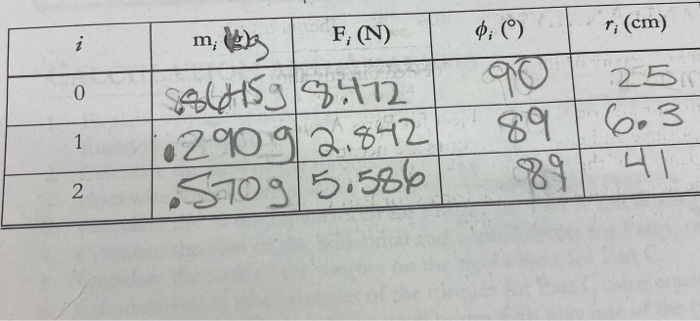 i mᵢ (g) kg Fᵢ (N) ϕᵢ (°) rᵢ (cm)
0 .8645g 8.472 90 25
1 .290g 2.842 89 6.3
2 .570g 5.586 89 41